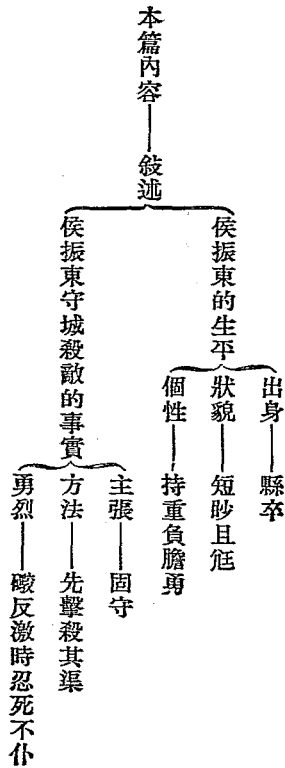 本篇內容——敍述
侯振東的生平
出身——縣卒
狀貌——短眇且尪
個性——持重負膽勇
侯振東守城殺敵的事實
主張——固守
方法——先擊殺其渠
勇烈——礮反激時忍死不仆